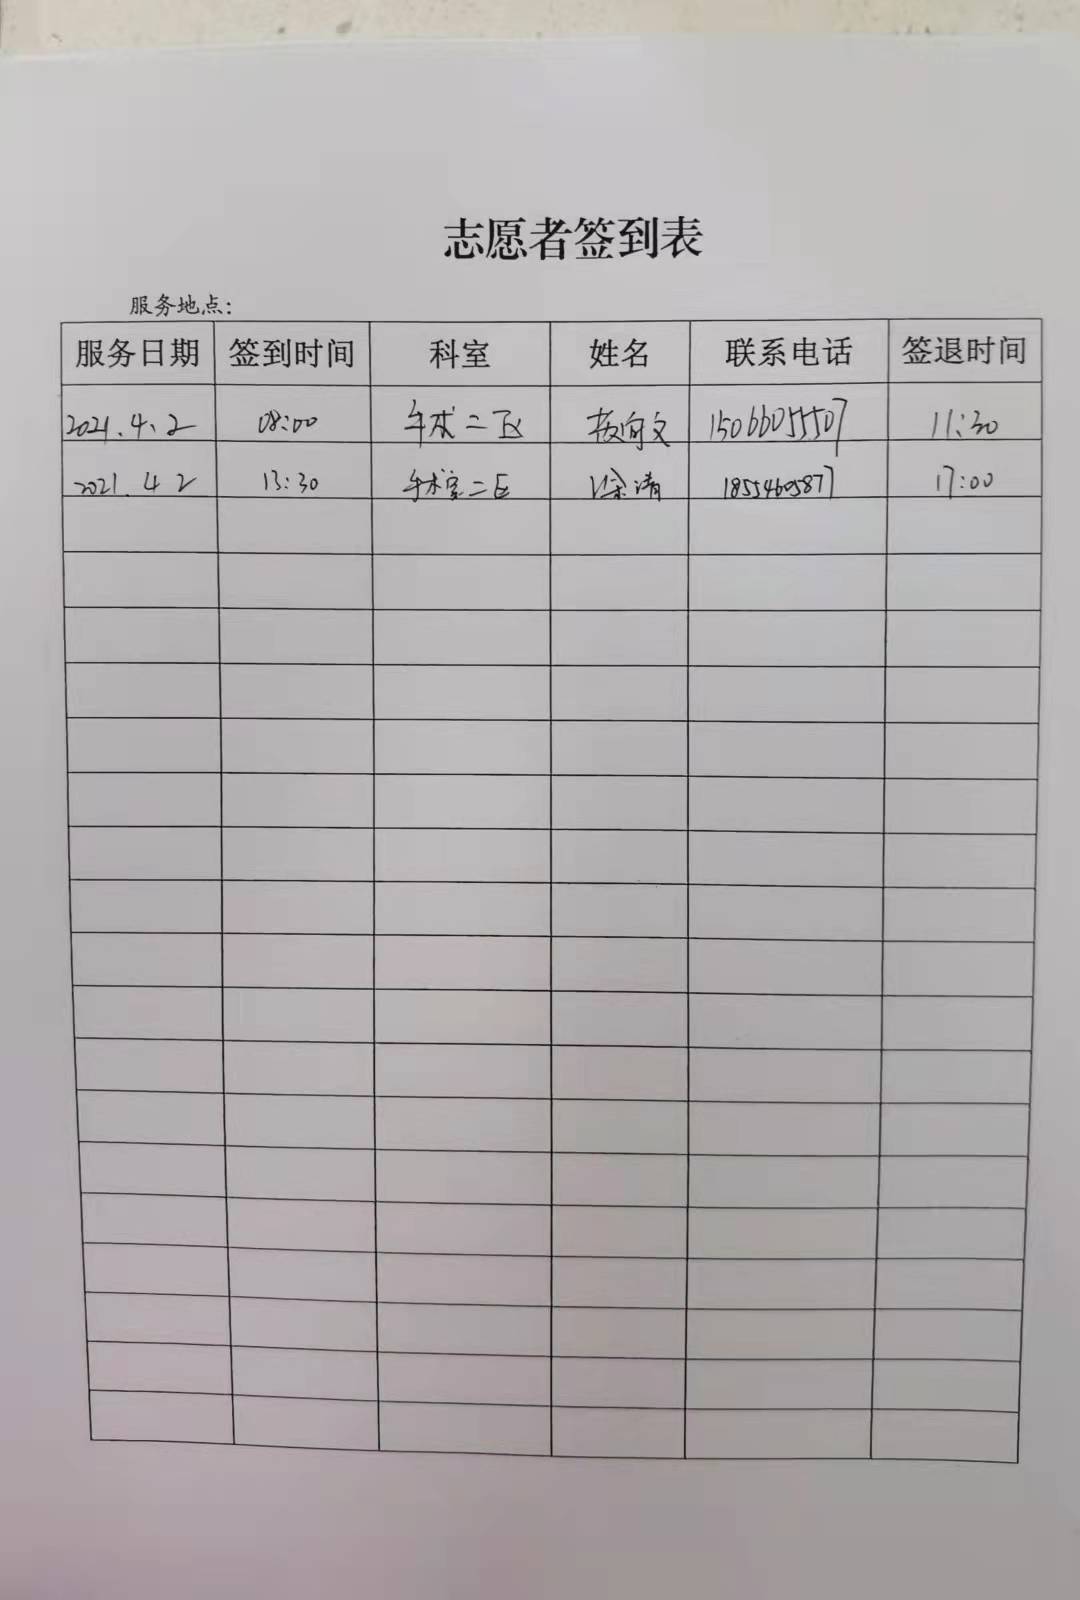 志愿者签到表
服务地点：
服务日期 签到时间 科室 姓名 联系电话 签退时间
2021.4.2 08:00 手术二区 向文 15066055507 11:30
2021.4 2 13:30 手术室二区 徐清 18554605877 17:00